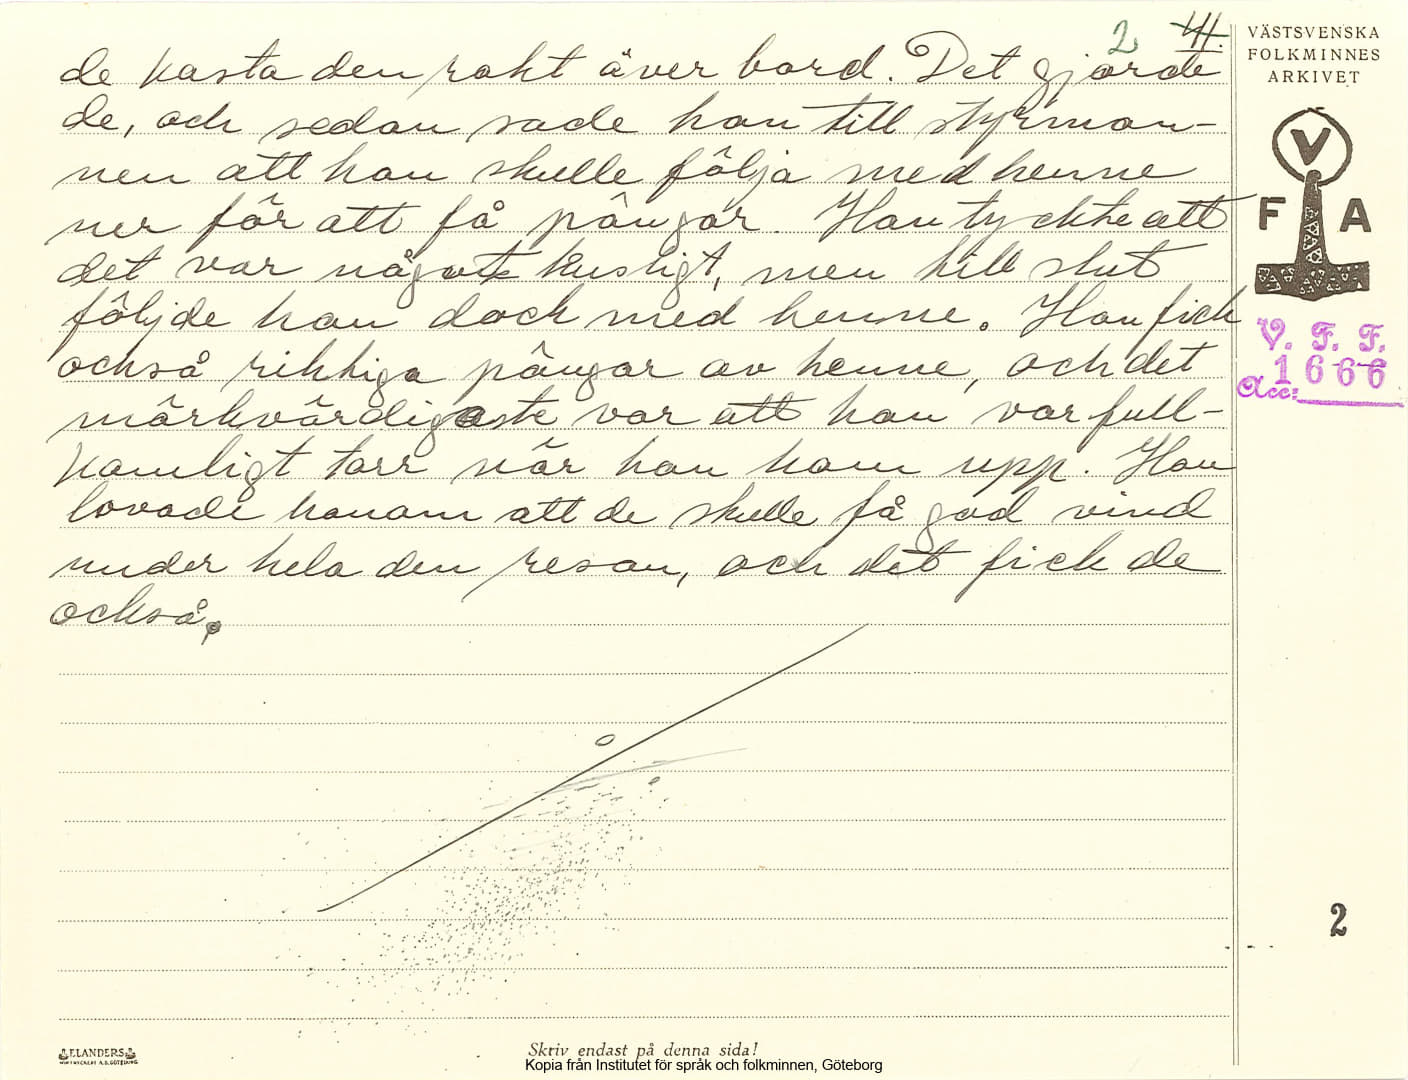 2 41.
de kasta den rakt över bord. Det gjorde
de, och sedan sade hon till styrman-
nen att han skulle följa med henne
ner för att få pängar. Han tyckte att
det var något kusligt, men till slut
följde han dock med henne. Han fick
också riktiga pängar av henne, och det
märkvärdigaste var att han var full-
komligt torr när han kom upp. Hon
lovade honom att de skulle få god vind
under hela den resan, och det fick de
också.
VÄSTSVENSKA
FOLKMINNES
ARKIVET
V
F A
V. F. F.
1666
Acc:
2
ELANDERS
Skriv endast på denna sida!
Kopia från Institutet för språk och folkminnen, Göteborg